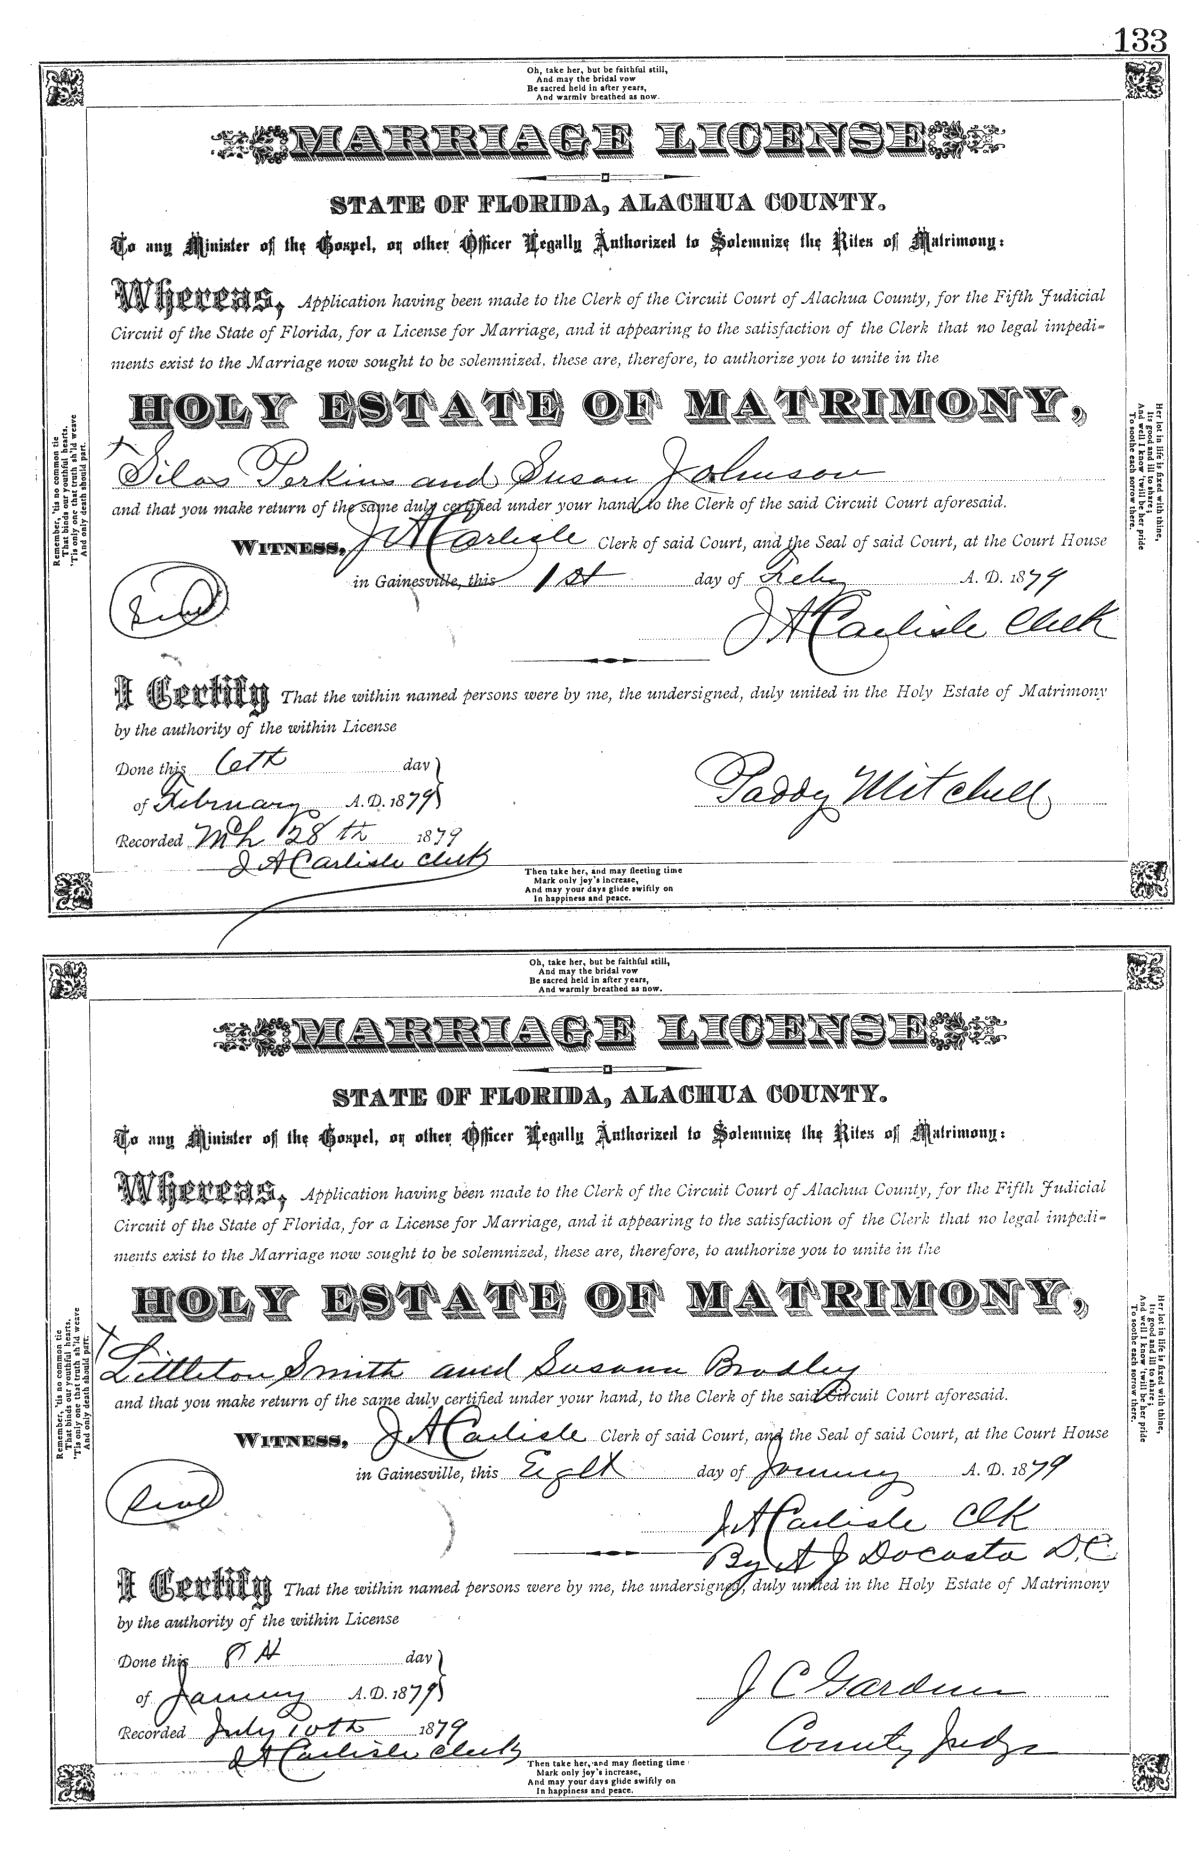 133
Oh, take her, but be faithful still,
And may the bridal vow
Be sacred held in after years,
And warmly breathed as now.
MARRIAGE LICENSE
STATE OF FLORIDA, ALACHUA COUNTY.
To any Minister of the Gospel, or other Officer Legally Authorized to Solemnize the Rites of Matrimony:
Whereas, Application having been made to the Clerk of the Circuit Court of Alachua County, for the Fifth Judicial
Circuit of the State of Florida, for a License for Marriage, and it appearing to the satisfaction of the Clerk that no legal impedi-
ments exist to the Marriage now sought to be solemnized, these are, therefore, to authorize you to unite in the
HOLY ESTATE OF MATRIMONY,
Silas Perkins and Susan Johnson
and that you make return of the same duly certified under your hand, to the Clerk of the said Circuit Court aforesaid.
WITNESS, J A Carlisle Clerk of said Court, and the Seal of said Court, at the Court House
in Gainesville, this 1st day of Feby A. D. 1879
Seal
J A Carlisle Clerk
I Certify That the within named persons were by me, the undersigned, duly united in the Holy Estate of Matrimony
by the authority of the within License
Done this 6th day
of February A.D. 1879
Paddy Mitchell
Recorded Mch 28th 1879
J A Carlisle Clerk
Then take her, and may fleeting time
Mark only joy's increase,
And may your days glide swiftly on
In happiness and peace.
Remember, 'tis no common tie
That binds our youthful hearts,
'Tis only one that truth sh'ld weave
And only death should part.
Her lot in life is fixed with thine,
Its good and ill to share;
And well I know 'twill be her pride
To soothe each sorrow there.
Oh, take her, but be faithful still,
And may the bridal vow
Be sacred held in after years,
And warmly breathed as now.
MARRIAGE LICENSE
STATE OF FLORIDA, ALACHUA COUNTY.
To any Minister of the Gospel, or other Officer Legally Authorized to Solemnize the Rites of Matrimony:
Whereas, Application having been made to the Clerk of the Circuit Court of Alachua County, for the Fifth Judicial
Circuit of the State of Florida, for a License for Marriage, and it appearing to the satisfaction of the Clerk that no legal impedi-
ments exist to the Marriage now sought to be solemnized, these are, therefore, to authorize you to unite in the
HOLY ESTATE OF MATRIMONY,
Littleton Smith and Susann Bradley
and that you make return of the same duly certified under your hand, to the Clerk of the said Circuit Court aforesaid.
WITNESS, J A Carlisle Clerk of said Court, and the Seal of said Court, at the Court House
in Gainesville, this Eight day of January A. D. 1879
Seal
J A Carlisle Clk
By A J Dacosta D.C.
I Certify That the within named persons were by me, the undersigned, duly united in the Holy Estate of Matrimony
by the authority of the within License
Done this 8th day
of January A.D. 1879
J C Gardner
Recorded July 10th 1879
County Judge
J A Carlisle Clerk
Then take her, and may fleeting time
Mark only joy's increase,
And may your days glide swiftly on
In happiness and peace.
Remember, 'tis no common tie
That binds our youthful hearts,
'Tis only one that truth sh'ld weave
And only death should part.
Her lot in life is fixed with thine,
Its good and ill to share;
And well I know 'twill be her pride
To soothe each sorrow there.